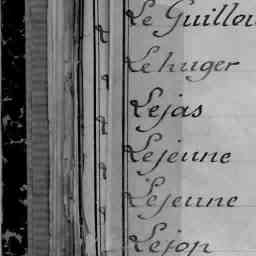 Le Guillou
Lehuger
Lejas
Lejeune
Lejeune
Lejop